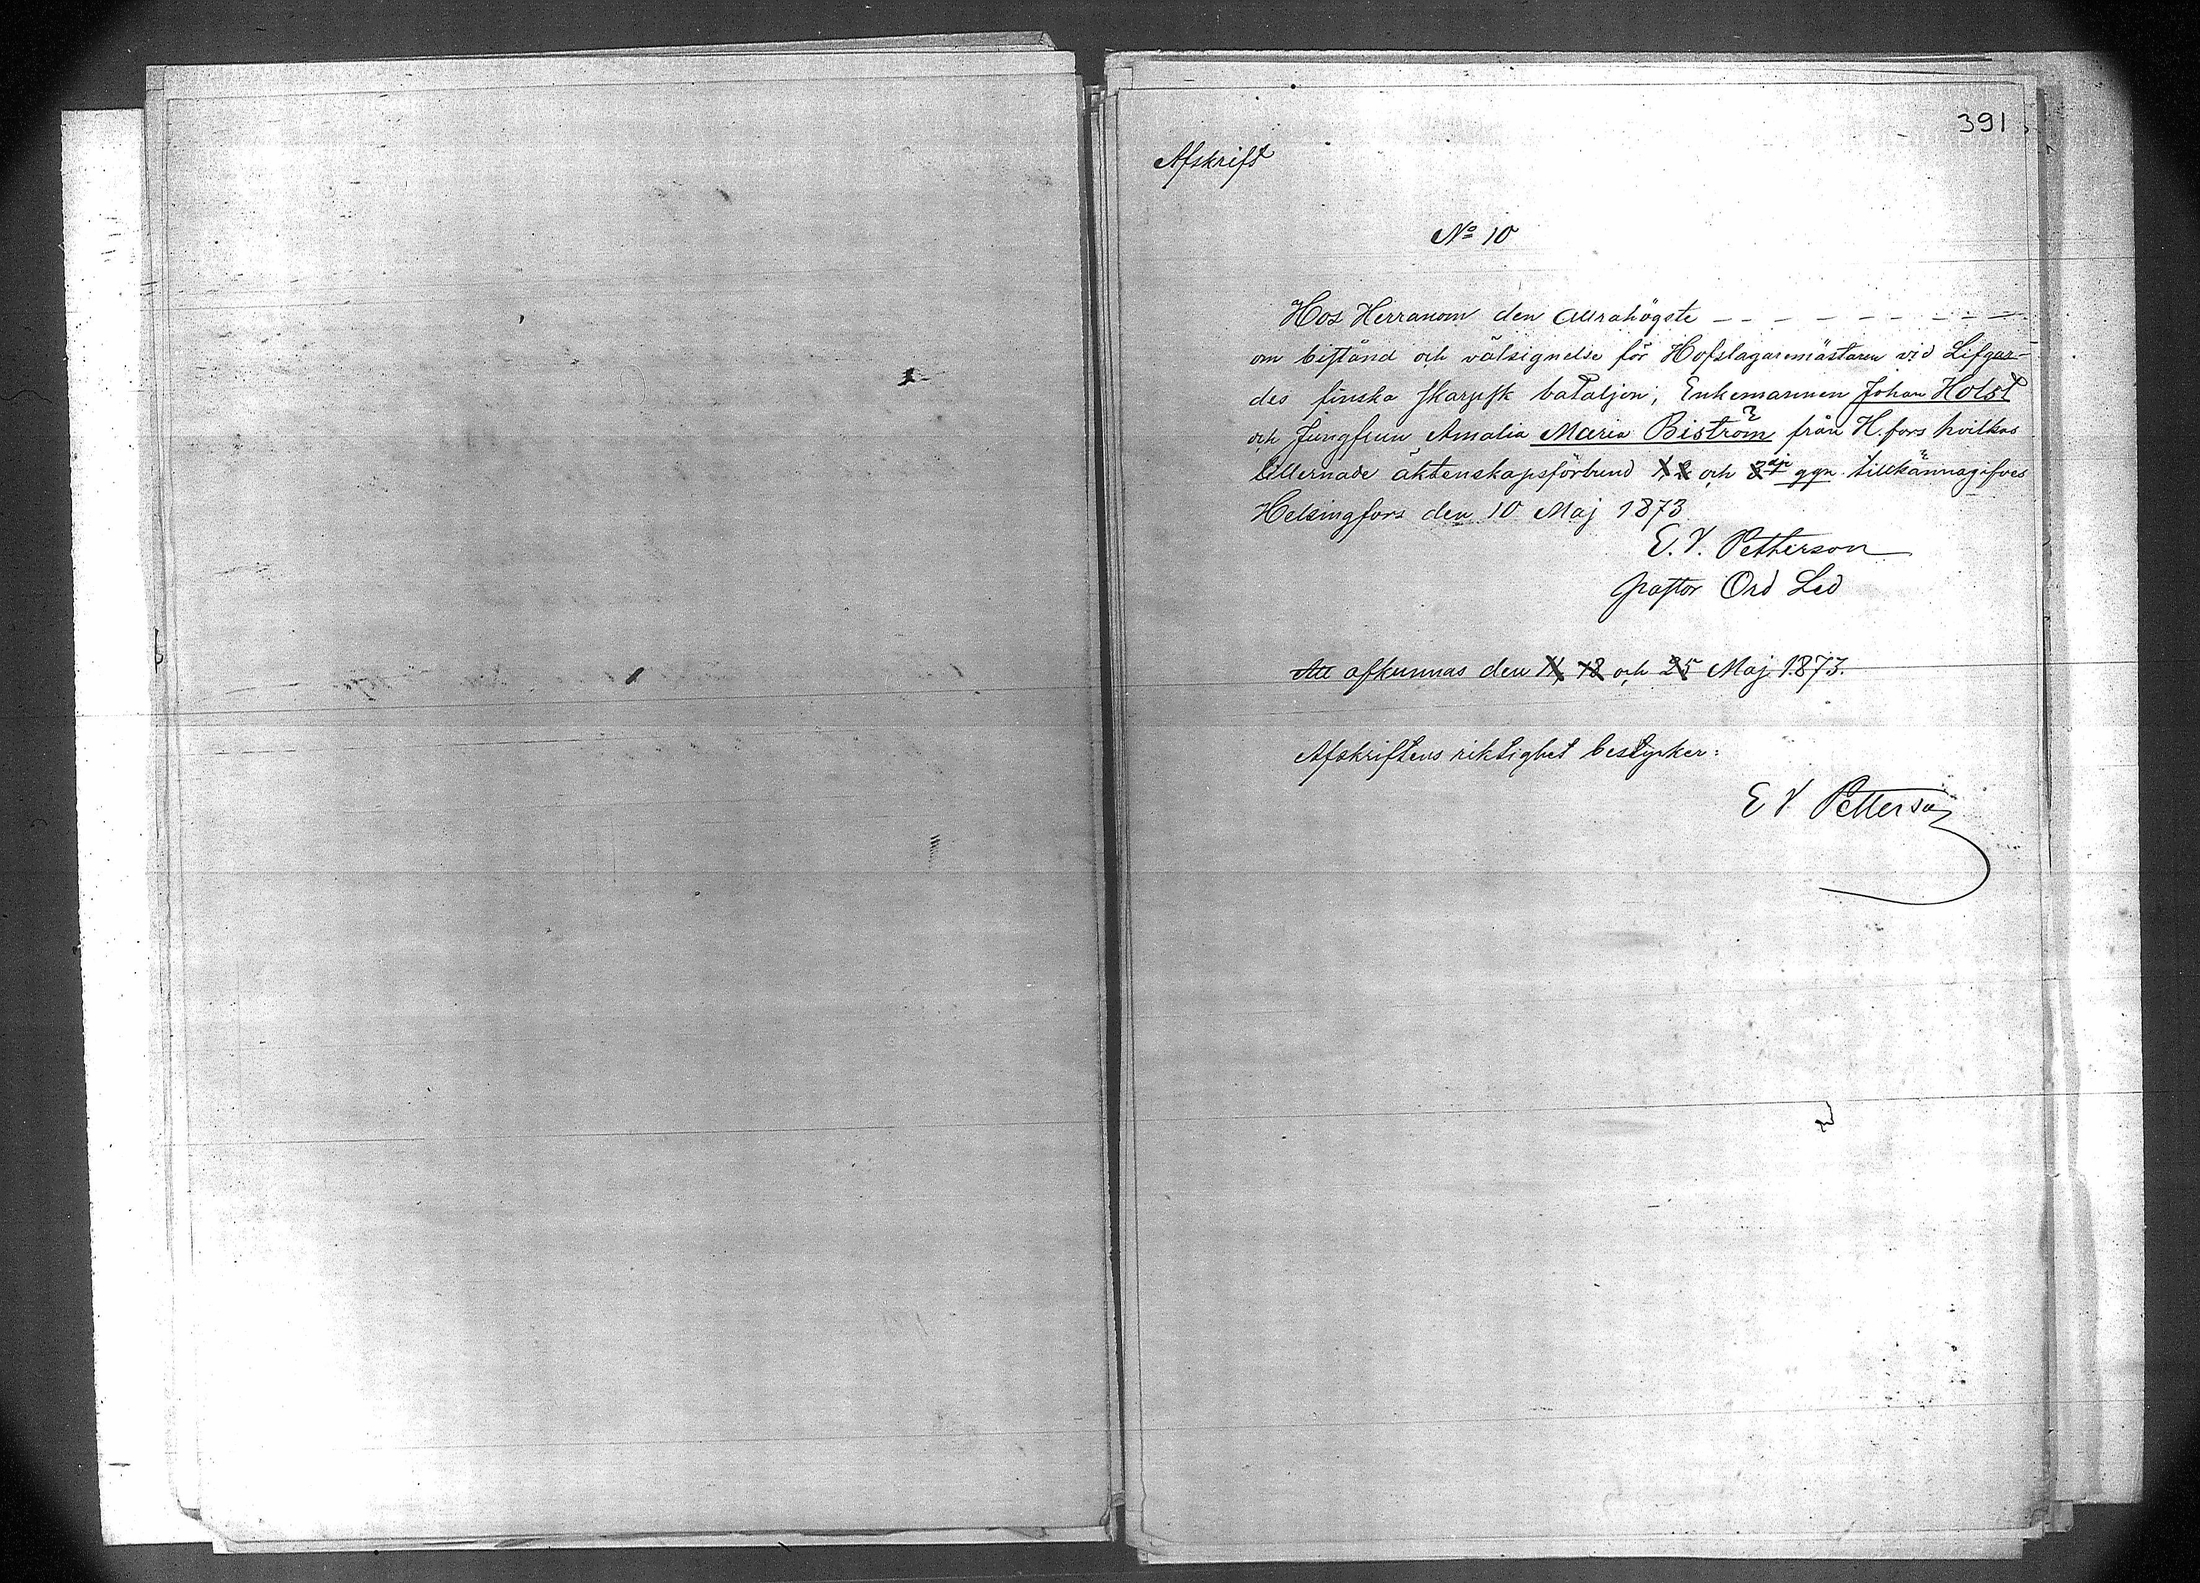 391
Afskrift
No 10
Hos Herranom den Allrahögste - - - - - - - -
om bistånd och välsignelse för Hofslagaremästaren vid Lifgar-
des finska skarpsk bataljon, Enkemannen Johan Holst
och Jungfrun Amalia Maria Biström från H.fors hvilkas
äktenskapsförbund 1, 2 och 3dje ggn. tillkännagifves
Helsingfors den 10 Maj 1873
E. V. Petterson
pastor Ord Led
Att afkunnas den 11, 18 och 25 Maj 1873.
Afskriftens riktighet bestyrker:
E V Petterson